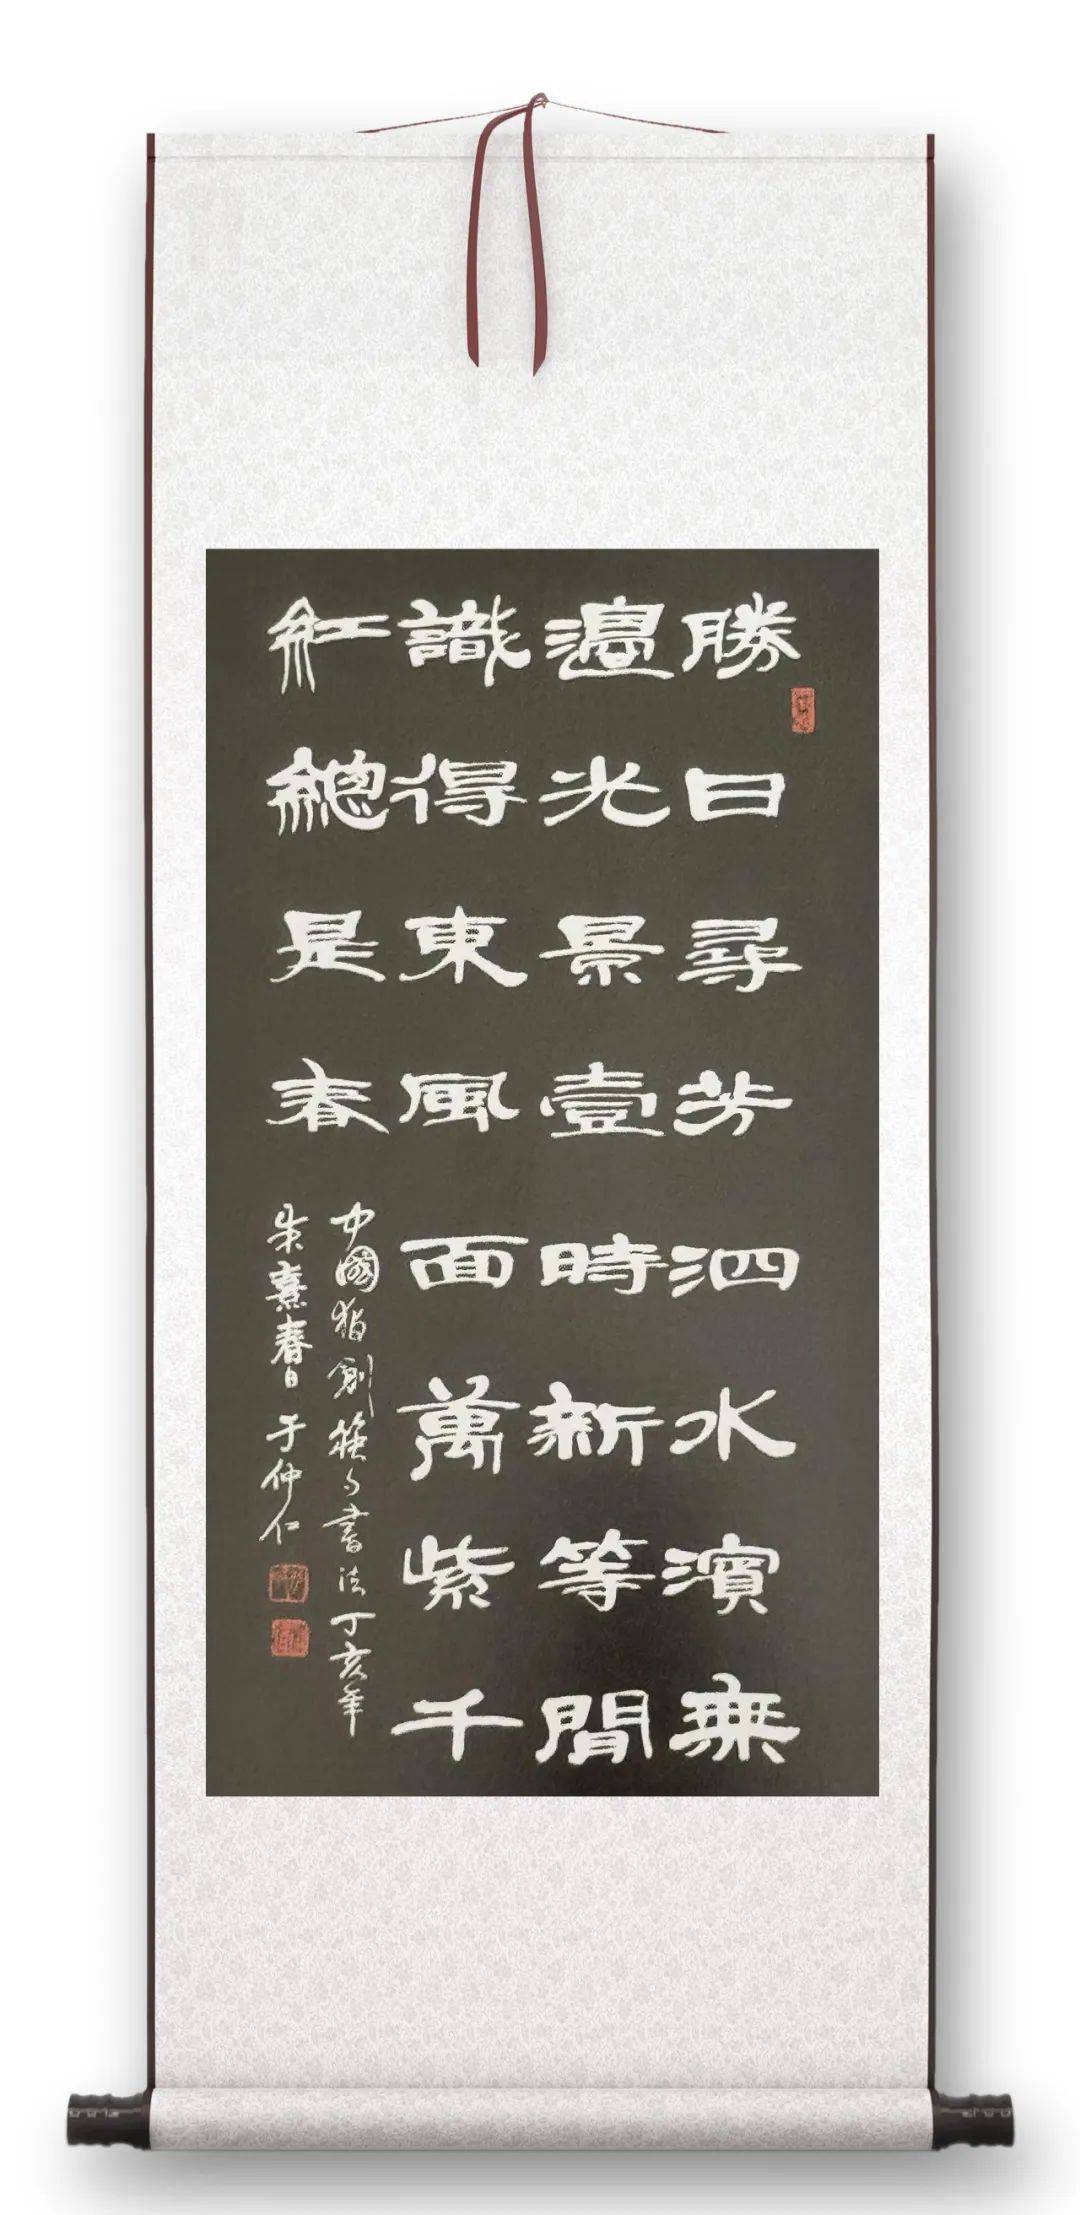 勝日尋芳泗水濱無
邊光景壹時新等間
識得東風面萬紫千
紅總是春
中國獨創筷子書法丁亥年
朱熹春日于仲仁